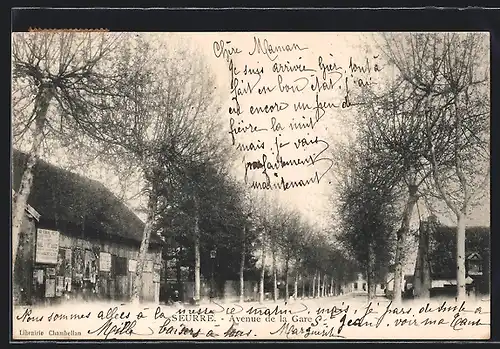 Chère Maman
Je suis arrivée hier tout à
fait en bon état, j'ai
eu encore un peu de
fièvre la nuit
mais je vais
parfaitement
maintenant
Nous sommes allées à la messe ce matin, je pars de suite à
SEURRE. - Avenue de la Gare
St Jean, voir ma Tante
Mille baisers à tous. Marguerite
Librairie Chambellan